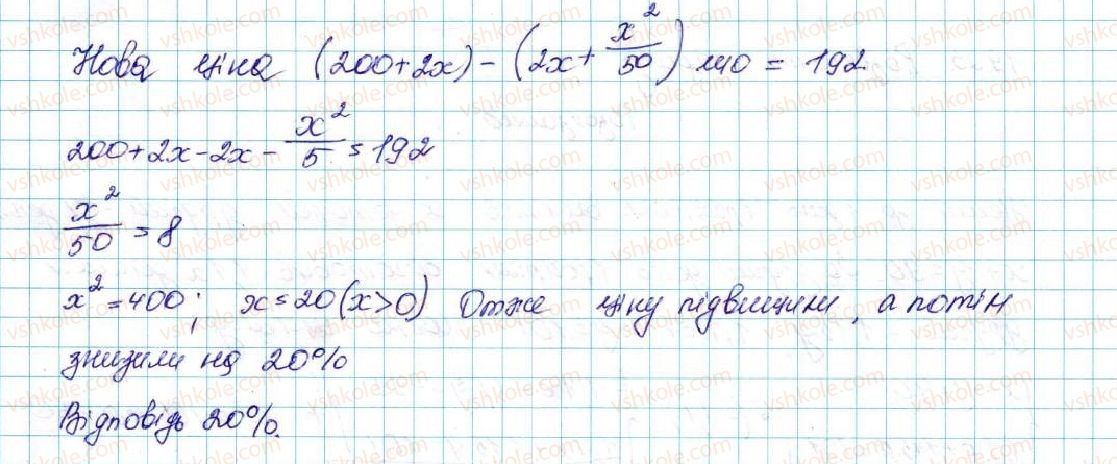 Нова ціна (200+2x) - (2x + x²/50) що = 192
200+2x-2x - x²/5 = 192
x²/50 = 8
x² = 400; x = 20 (x>0) Отже ціну підвищили, а потім
знизили на 20%
Відповідь 20%.